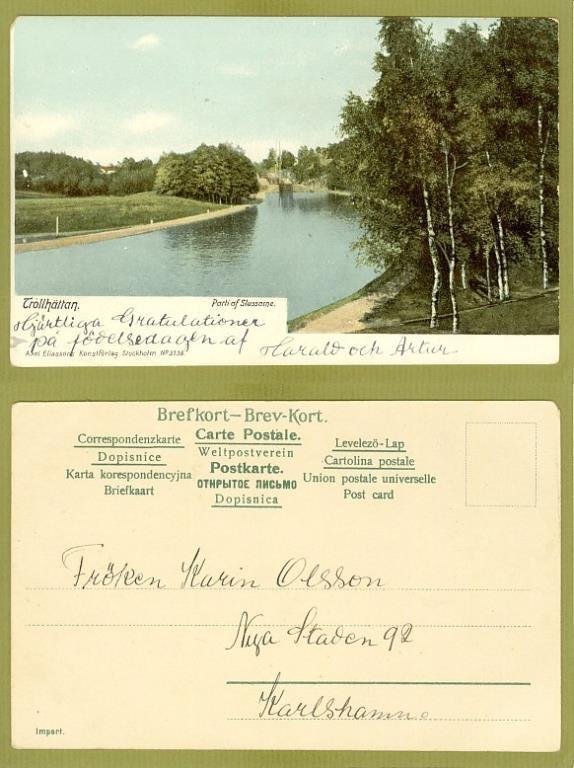 Trollhättan.
Parti af Slussarne.
Hjärtliga Gratulationer
på födelsedagen af
Harald och Artur
Axel Eliassons Konstförlag Stockholm Nº 3138
Brefkort—Brev-Kort.
Correspondenzkarte
Carte Postale.
Levelező-Lap
Dopisnice
Weltpostverein
Cartolina postale
Karta korespondencyjna
Postkarte.
Union postale universelle
Briefkaart
ОТКРЫТОЕ ПИСЬМО
Post card
Dopisnica
Fröken Karin Olsson
Nya Staden 92
Karlshamn.
Import.